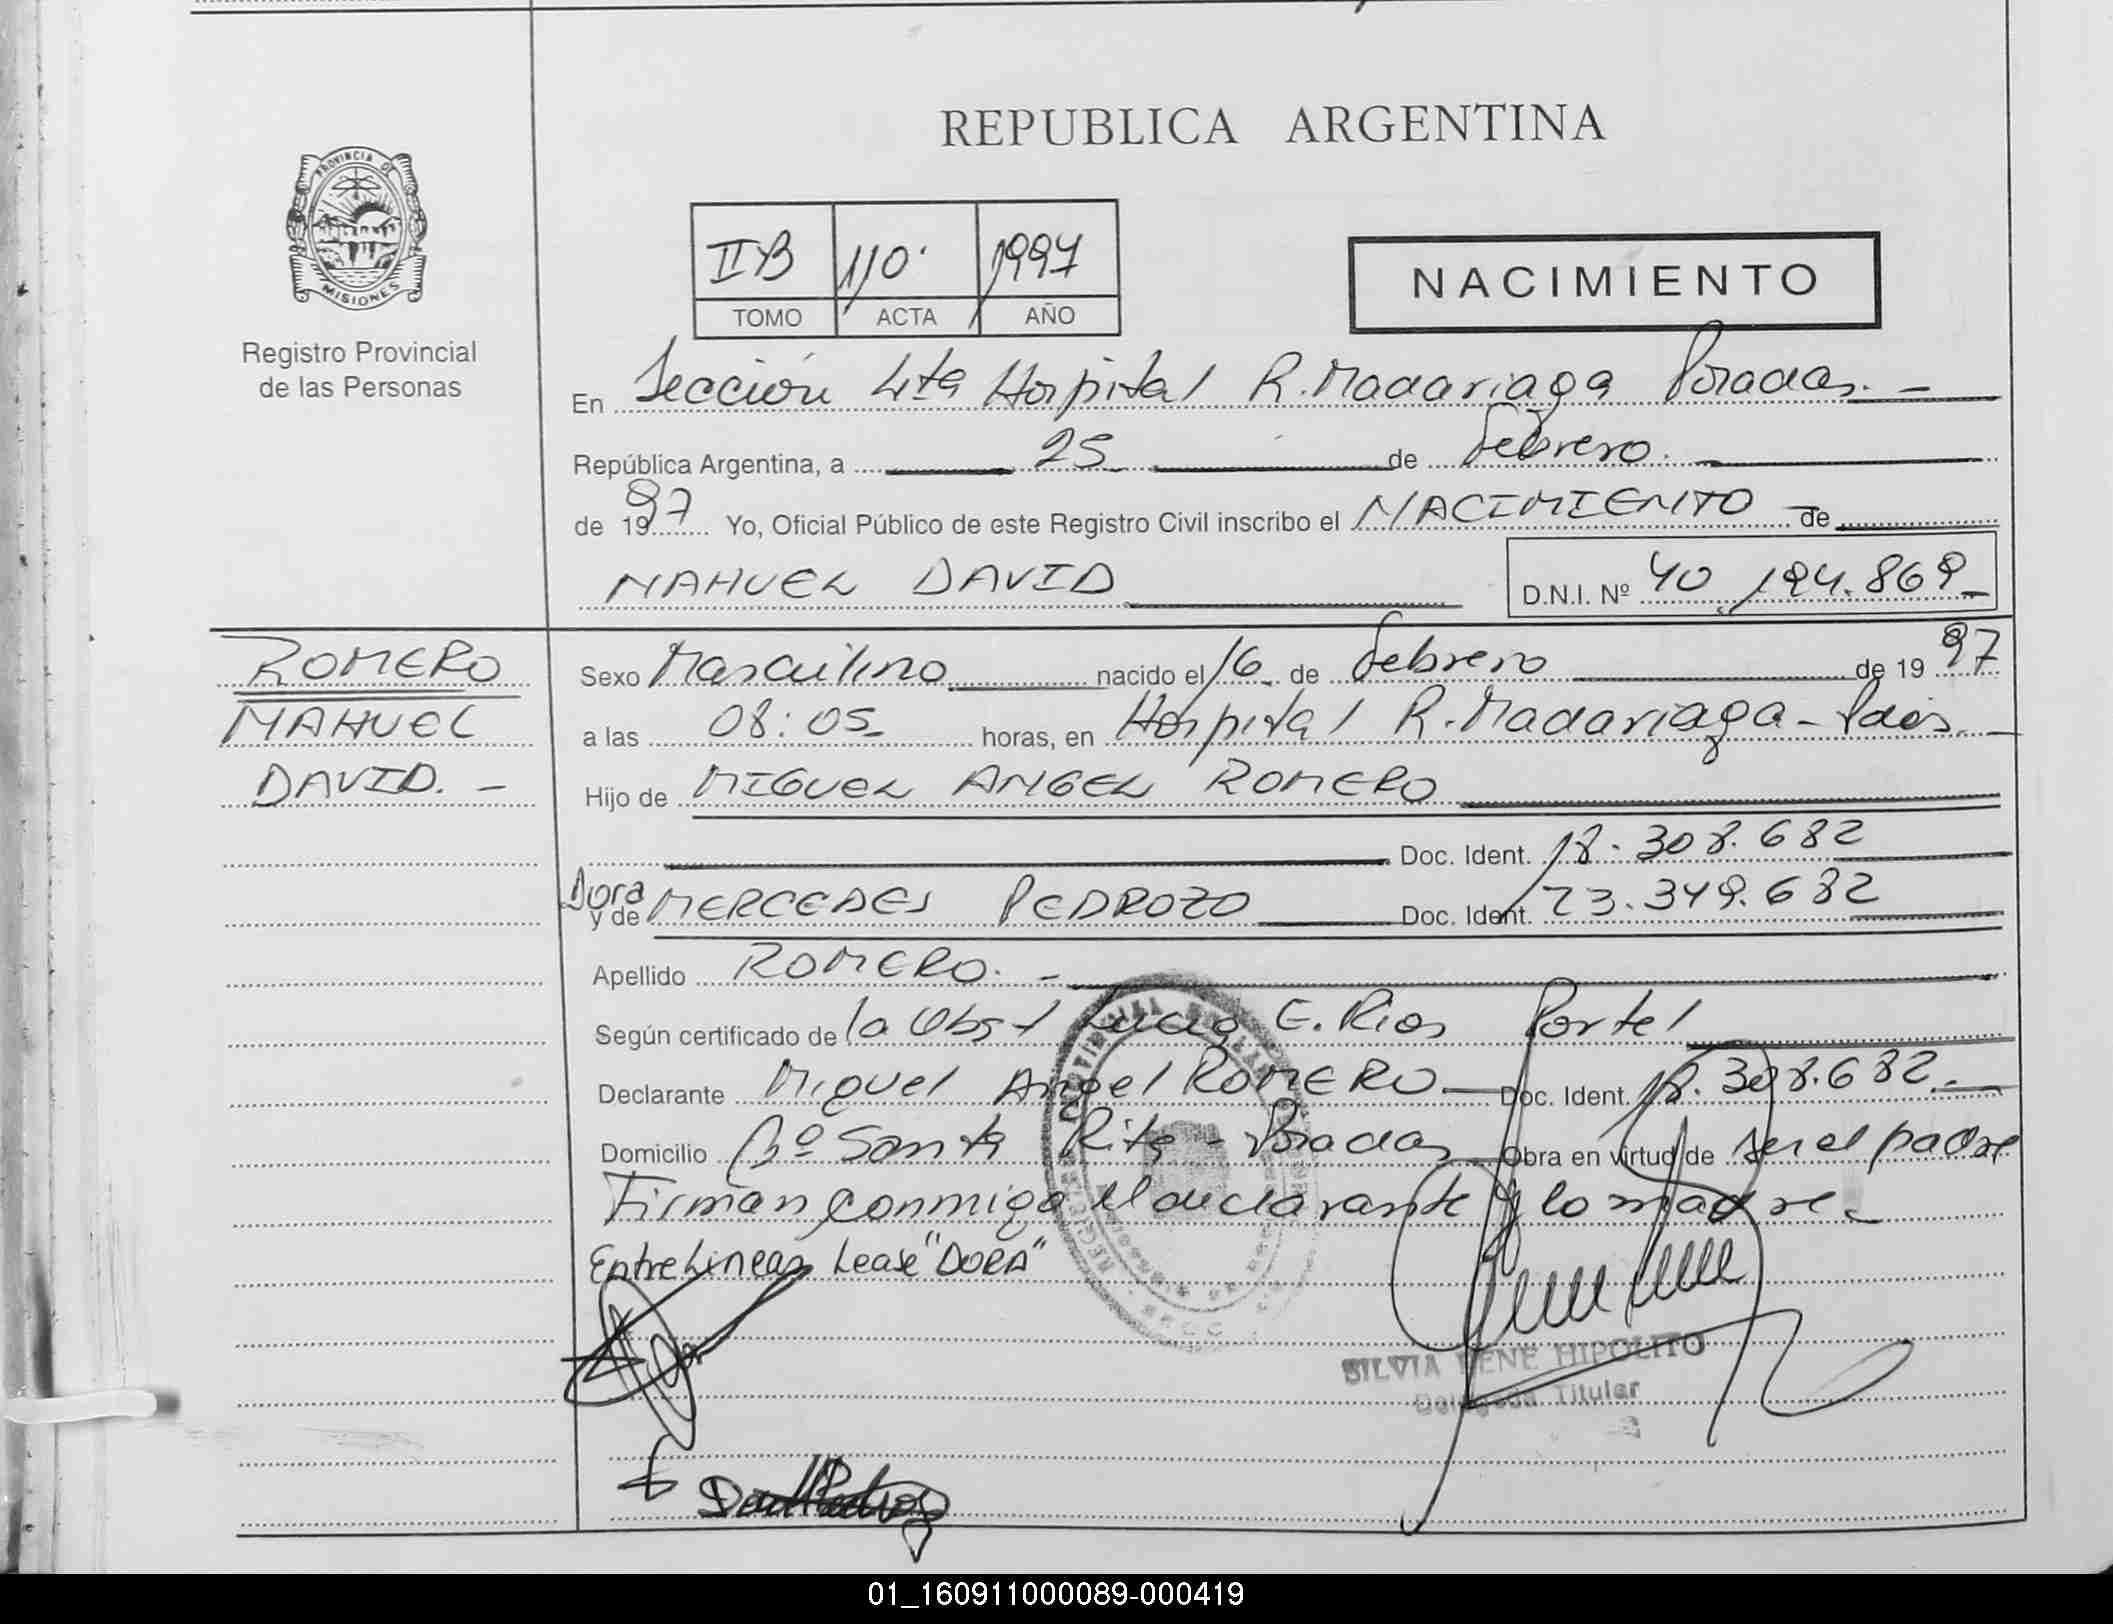 REPUBLICA ARGENTINA
PROVINCIA DE
MISIONES
Registro Provincial
de las Personas
IIB 110 1997
TOMO ACTA AÑO
NACIMIENTO
En Sección 4ta Hospital R. Madariaga Posadas. -
República Argentina, a 25 de Febrero.
de 1997 Yo, Oficial Público de este Registro Civil inscribo el NACIMIENTO - de
NAHUEL DAVID
D.N.I. Nº 40.194.869-
ROMERO
NAHUEL
DAVID. -
Sexo Masculino nacido el 16 de Febrero de 1997
a las 08:05 horas, en Hospital R. Madariaga - Pdas. -
Hijo de MIGUEL ANGEL ROMERO
Doc. Ident. 18.308.682
Dora
y de MERCEDES PEDROZO Doc. Ident. 23.349.632
Apellido ROMERO. -
Según certificado de la Obst Lucia E. Rios Portel
Declarante Miguel Angel ROMERO Doc. Ident. 18.308.682. -
Domicilio Bº Santa Rita - Posadas Obra en virtud de ser el padre
Firman conmigo el declarante y la madre -
Entre Lineas Lease "DORA"
SILVIA RENE HIPOLITO
Delegada Titular
01_160911000089-000419